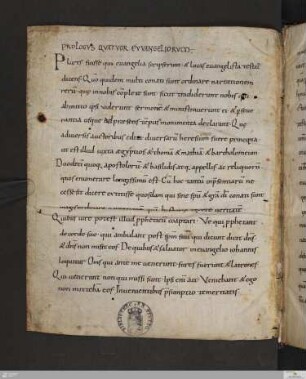 PROLOGUS QUATTUOR EVVANGELIORUM
Plures fuisse qui evangelia scripserunt & lucas evangelista testat
dicens Qm quidem multi conati sunt ordinare narrationem
rerum que in nobis complete sunt sicut tradiderunt nobis qui
ab initio ipsi viderunt sermone & ministraverunt ei &
ad presens tempus monumenta declarant Que
adversis auctoribus edita diversarum heresum fuere principia
ut est illud iuxta aegyptios & thoma & mathia & bartholomeum
Duodecim quoq apostolorum & basilidis atq appellis ac reliquorum
quos enumerare longissimum est Cu hoc tantu inpsentiaru ne
cesse sit dicere extitisse quosdam qui sine spu & gra di conati sunt
magis ordinare
Quibus iure potest illud ppheticu coaptari Ve qui pphetant
de corde suo qui ambulant post spm suu qui dicunt dicit dns
& dns non misit eos De quibus & salvator in evangelio iohannis
loquitur Oms qui ante me venerunt fures fuerunt & latrones
Qui venerunt non qui missi sunt Ipse eni ait Veniebant & ego
non mittebam eos In venientibus psumptio temeritatis